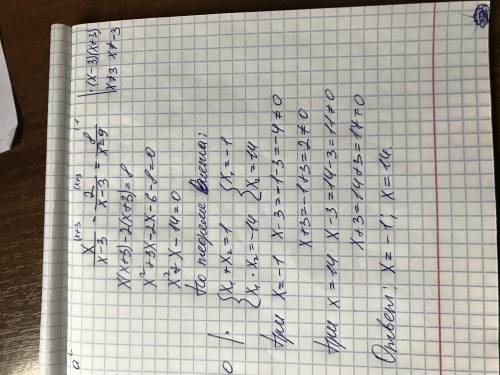 x/(x-3) \ x+3 - 2/(x-3) \ x+3 = 8/(x²-9) \ 1 | ·(x-3)(x+3)
x≠3 x≠-3
x(x+3)-2(x+3)=8
x²+3x-2x-6-8=0
x²+x-14=0
По теореме Виета:
{ x₁+x₂=1 { x₁=-1
{ x₁·x₂=-14 { x₂=14
При x=-1 x-3=-1-3=-4≠0
x+3=-1+3=2≠0
При x=14 x-3=14-3=11≠0
x+3=14+3=17≠0
Ответ: x=-1; x=14.